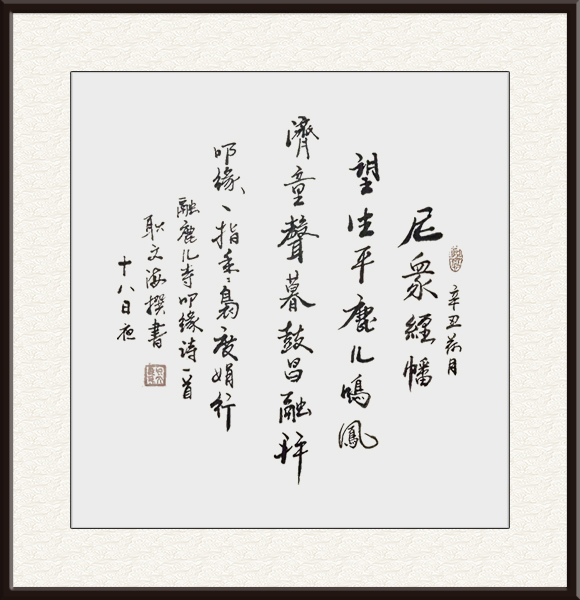 辛丑荷月
尼眾經幡
望生平鹿儿鳴鳳
濟童聲暮鼓昌融
叩緣、指柔、度娟行
融鹿儿寺叩缘诗一首
耿文海撰書
十八日夜